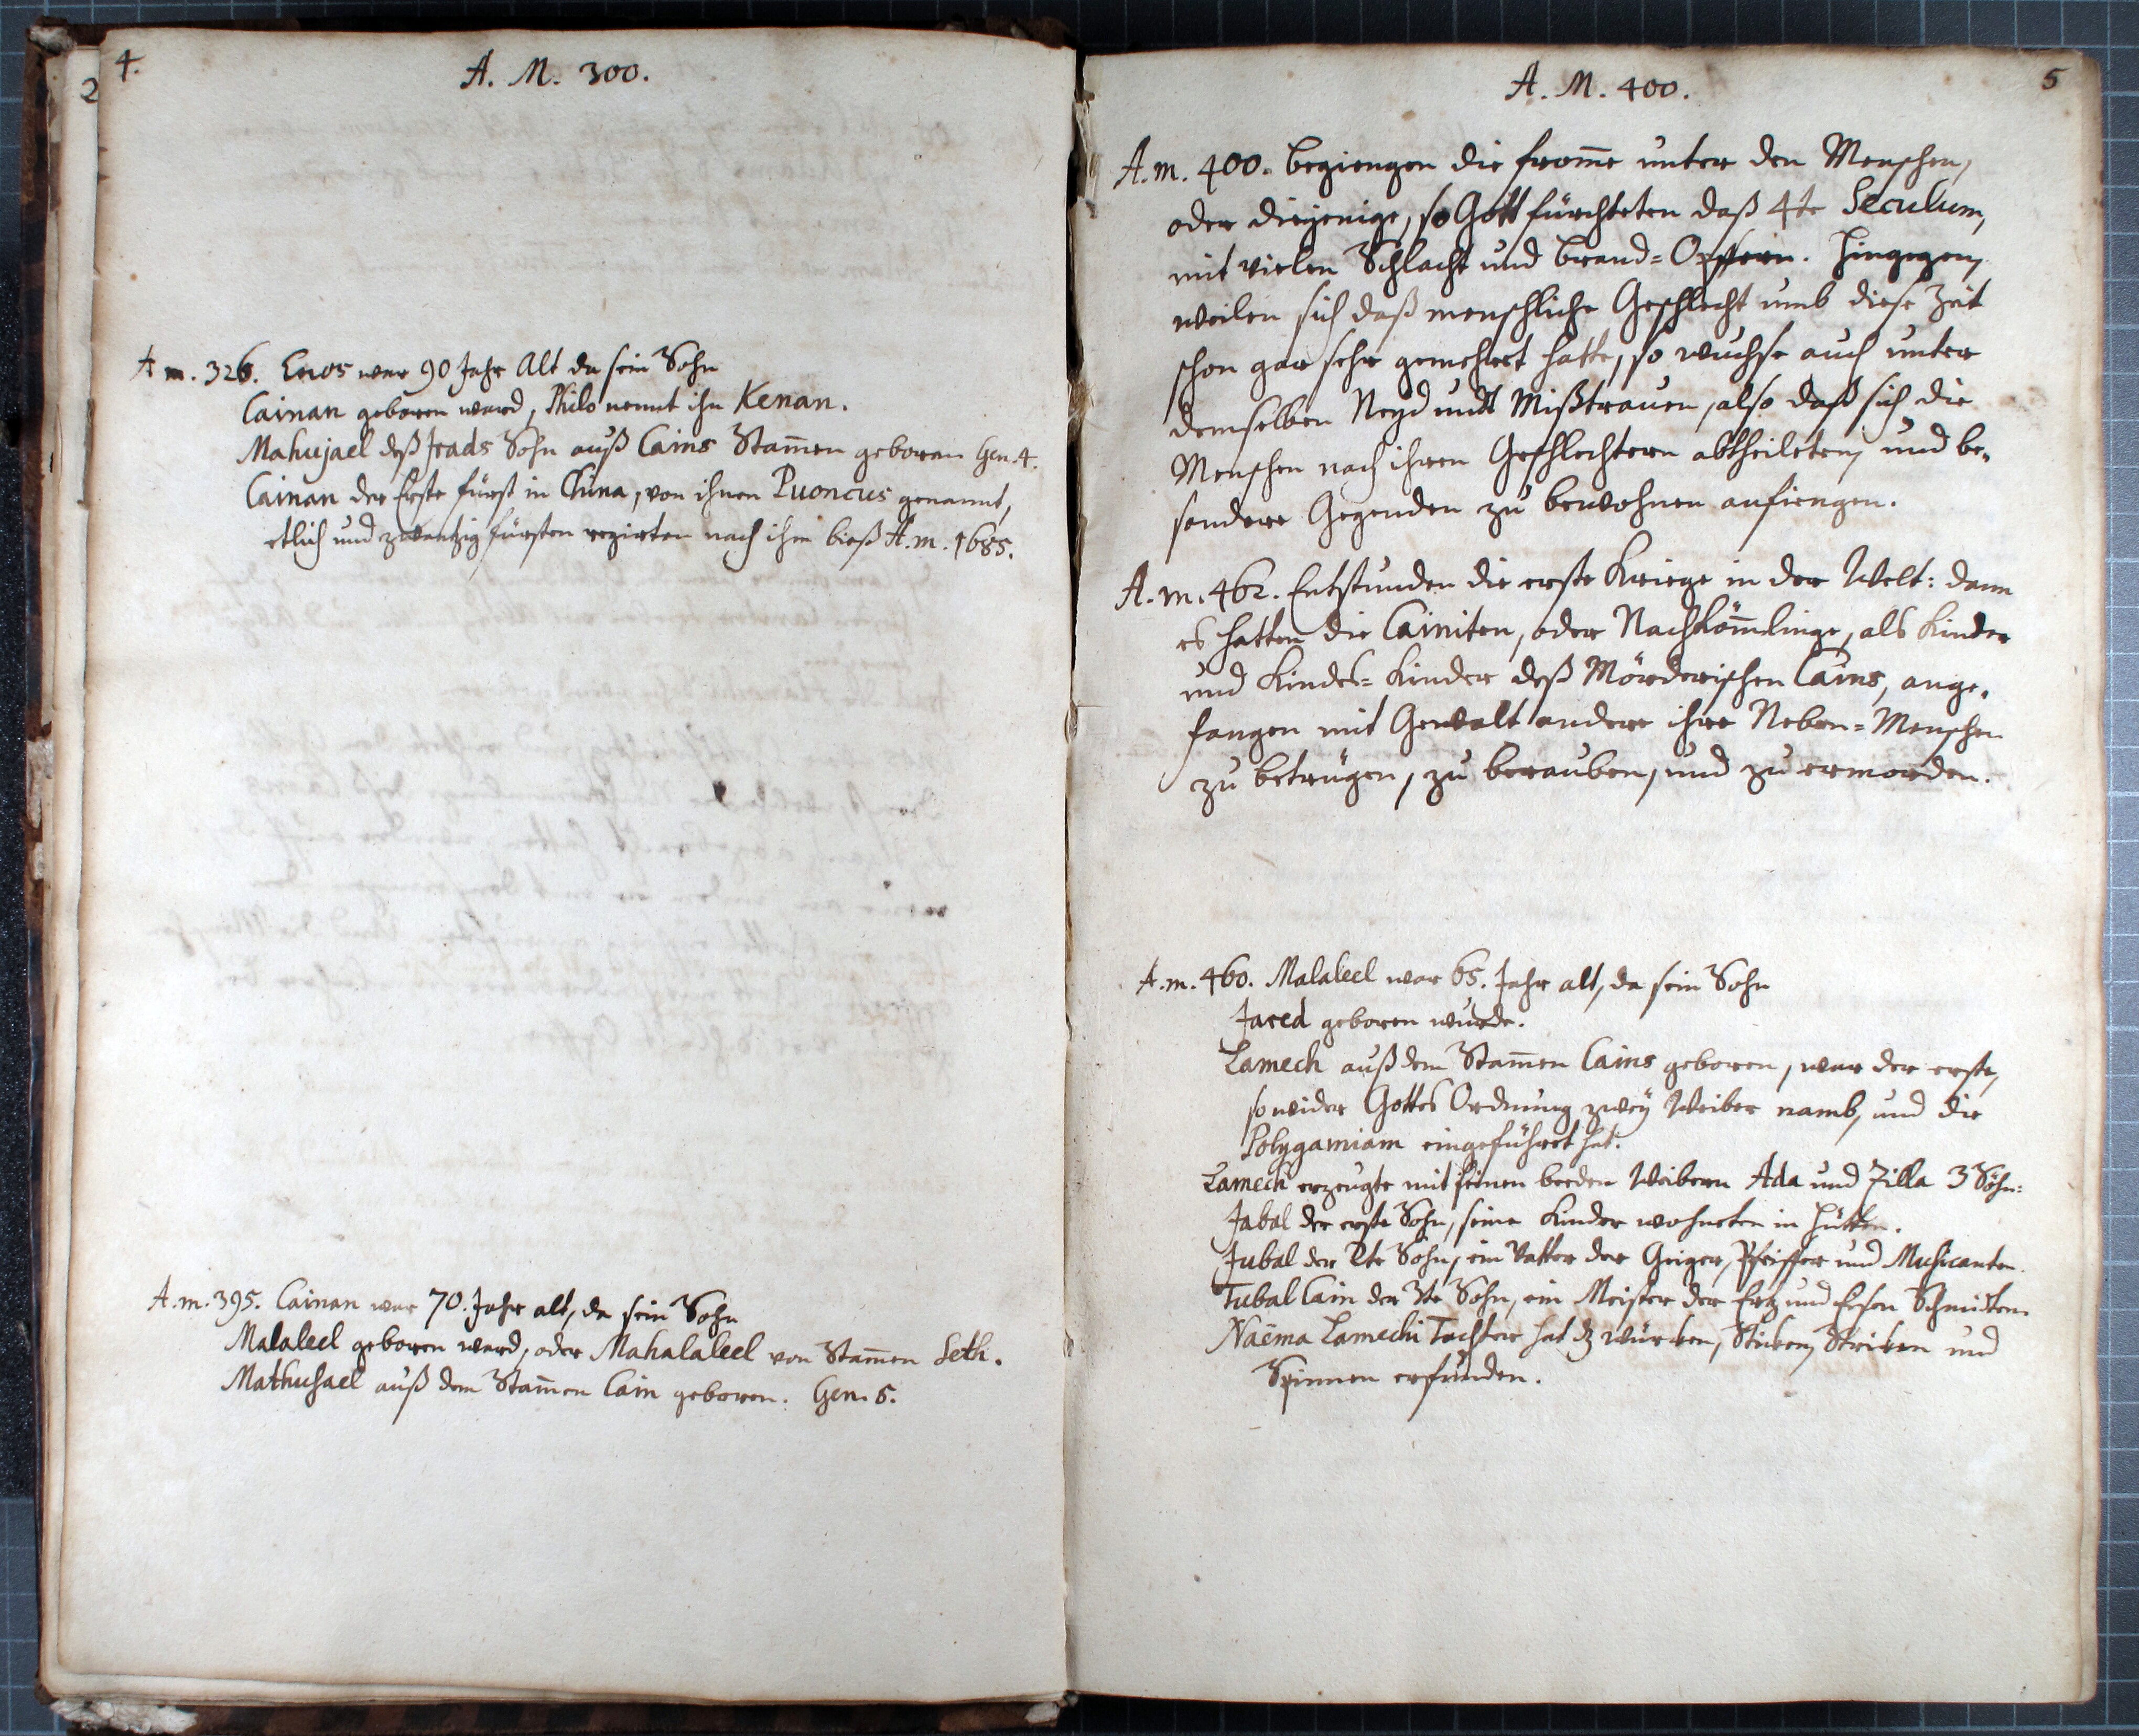 2
4.
A. M. 300.
A m. 326. Enos war 90 Jahr Alt da sein Sohn
Cainan geboren ward, Philo nennt ihn Kenan.
Mahujael deß Irads Sohn auß Cains Stam̄en geboren Gen. 4.
Cainan der Erste fürst in China, von ihnen Puoncus genannt,
etlich und zwantzig fürsten regirten nach ihm bieß A. m. 1685.
A. m. 395. Cainan war 70. Jahr alt, da sein Sohn
Malaleel geboren ward, oder Mahalaleel von Stam̄en Seth.
Mathusael auß dem Stam̄en Cain geboren. Gen. 5.
5
A. M. 400.
A. m. 400. begiengen die from̄e unter den Menschen,
oder diejenige, so Gott fürchteten daß 4te Seculum,
mit vielen Schlacht und brand= Opffern. Hingegen,
weilen sich daß menschliche Geschlecht umb diese Zeit
schon gar sehr gemehret hatte, so wuchse auch unter
demselben Neyd undt Mißtrauen, also daß sich die
Menschen nach ihren Geschlechtern abtheileten, und be-
sondere Gegenden zu bewohnen anfiengen.
A. m. 462. Entstunden die erste Kriege in der Welt: dann
es hatten die Cainiten, oder Nachköm̄linge, als Kinder
und Kindes= Kinder deß Mörderischen Cains, ange-
fangen mit Gewalt andere ihre Neben= Menschen
zu betrügen, zu berauben, und zu ermorden.
A. m. 460. Malaleel war 65. Jahr alt, da sein Sohn
Jared geboren wurde.
Lamech auß dem Stam̄en Cains geboren, war der erste,
so wider Gottes Ordnung zwey Weiber namb, und die
Polygamiam eingeführet hat.
Lamech erzeugte mit seinen beeden Weibern Ada und Zilla 3 Söhn:
Jabal der erste Sohn, seine Kinder wohneten in Hütten.
Jubal der 2te Sohn, ein Vatter der Geiger, Pfeiffer und Musicanten.
Tubal Cain der 3te Sohn, ein Meister der Ertz und Eysen Schmidten.
Naëma Lamechi Tochter hat dz würcken, Sticken, Stricken und
Spinnen erfunden.